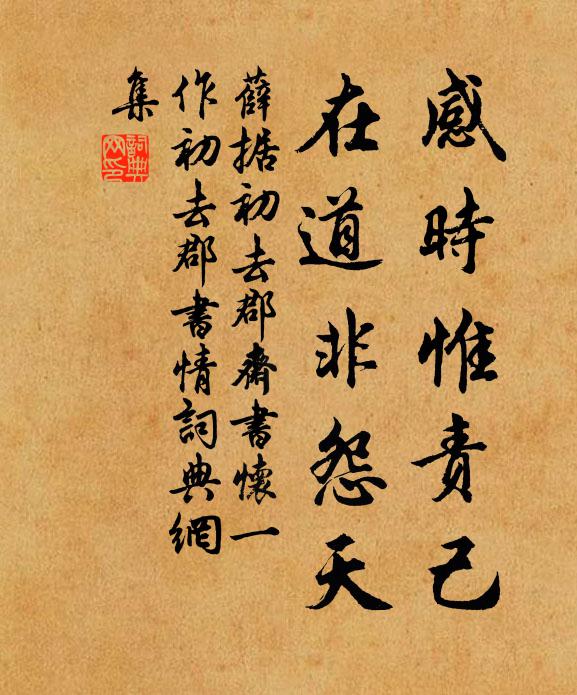 感時惟責己
在道非怨天
薛據初去郡齋書懷一
作初去郡書情詞典網
集
詞典網印